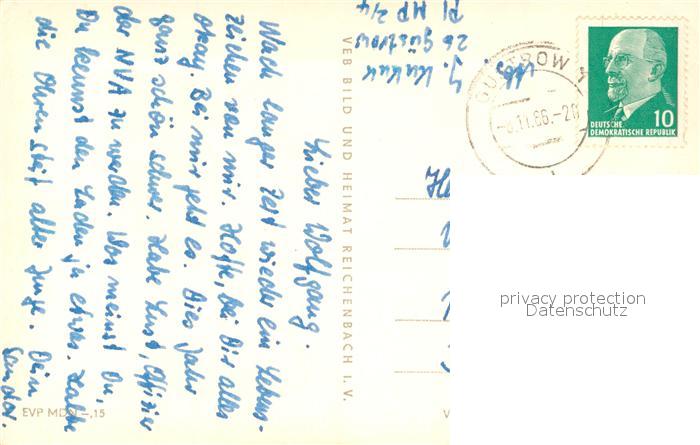 Lieber Wolfgang.
Nach langer Zeit wieder ein Lebens-
zeichen von mir. Hoffe, bei Dir alles
okay. Bei mir geht es. Dies Jahr
ganz schön schwer. Habe Lust, Offizier
der NVA zu werden. Was meinst Du,
Du kennst den Laden ja etwas. Halte
die Ohren steif alter Junge. Dein
Sandor.
EVP MDN -,15
VEB BILD UND HEIMAT REICHENBACH I. V.
Abs.
26 Güstrow
PI MP 2/4
GÜSTROW 1
.11.66.-20
10
DEUTSCHE
DEMOKRATISCHE REPUBLIK
privacy protection
Datenschutz